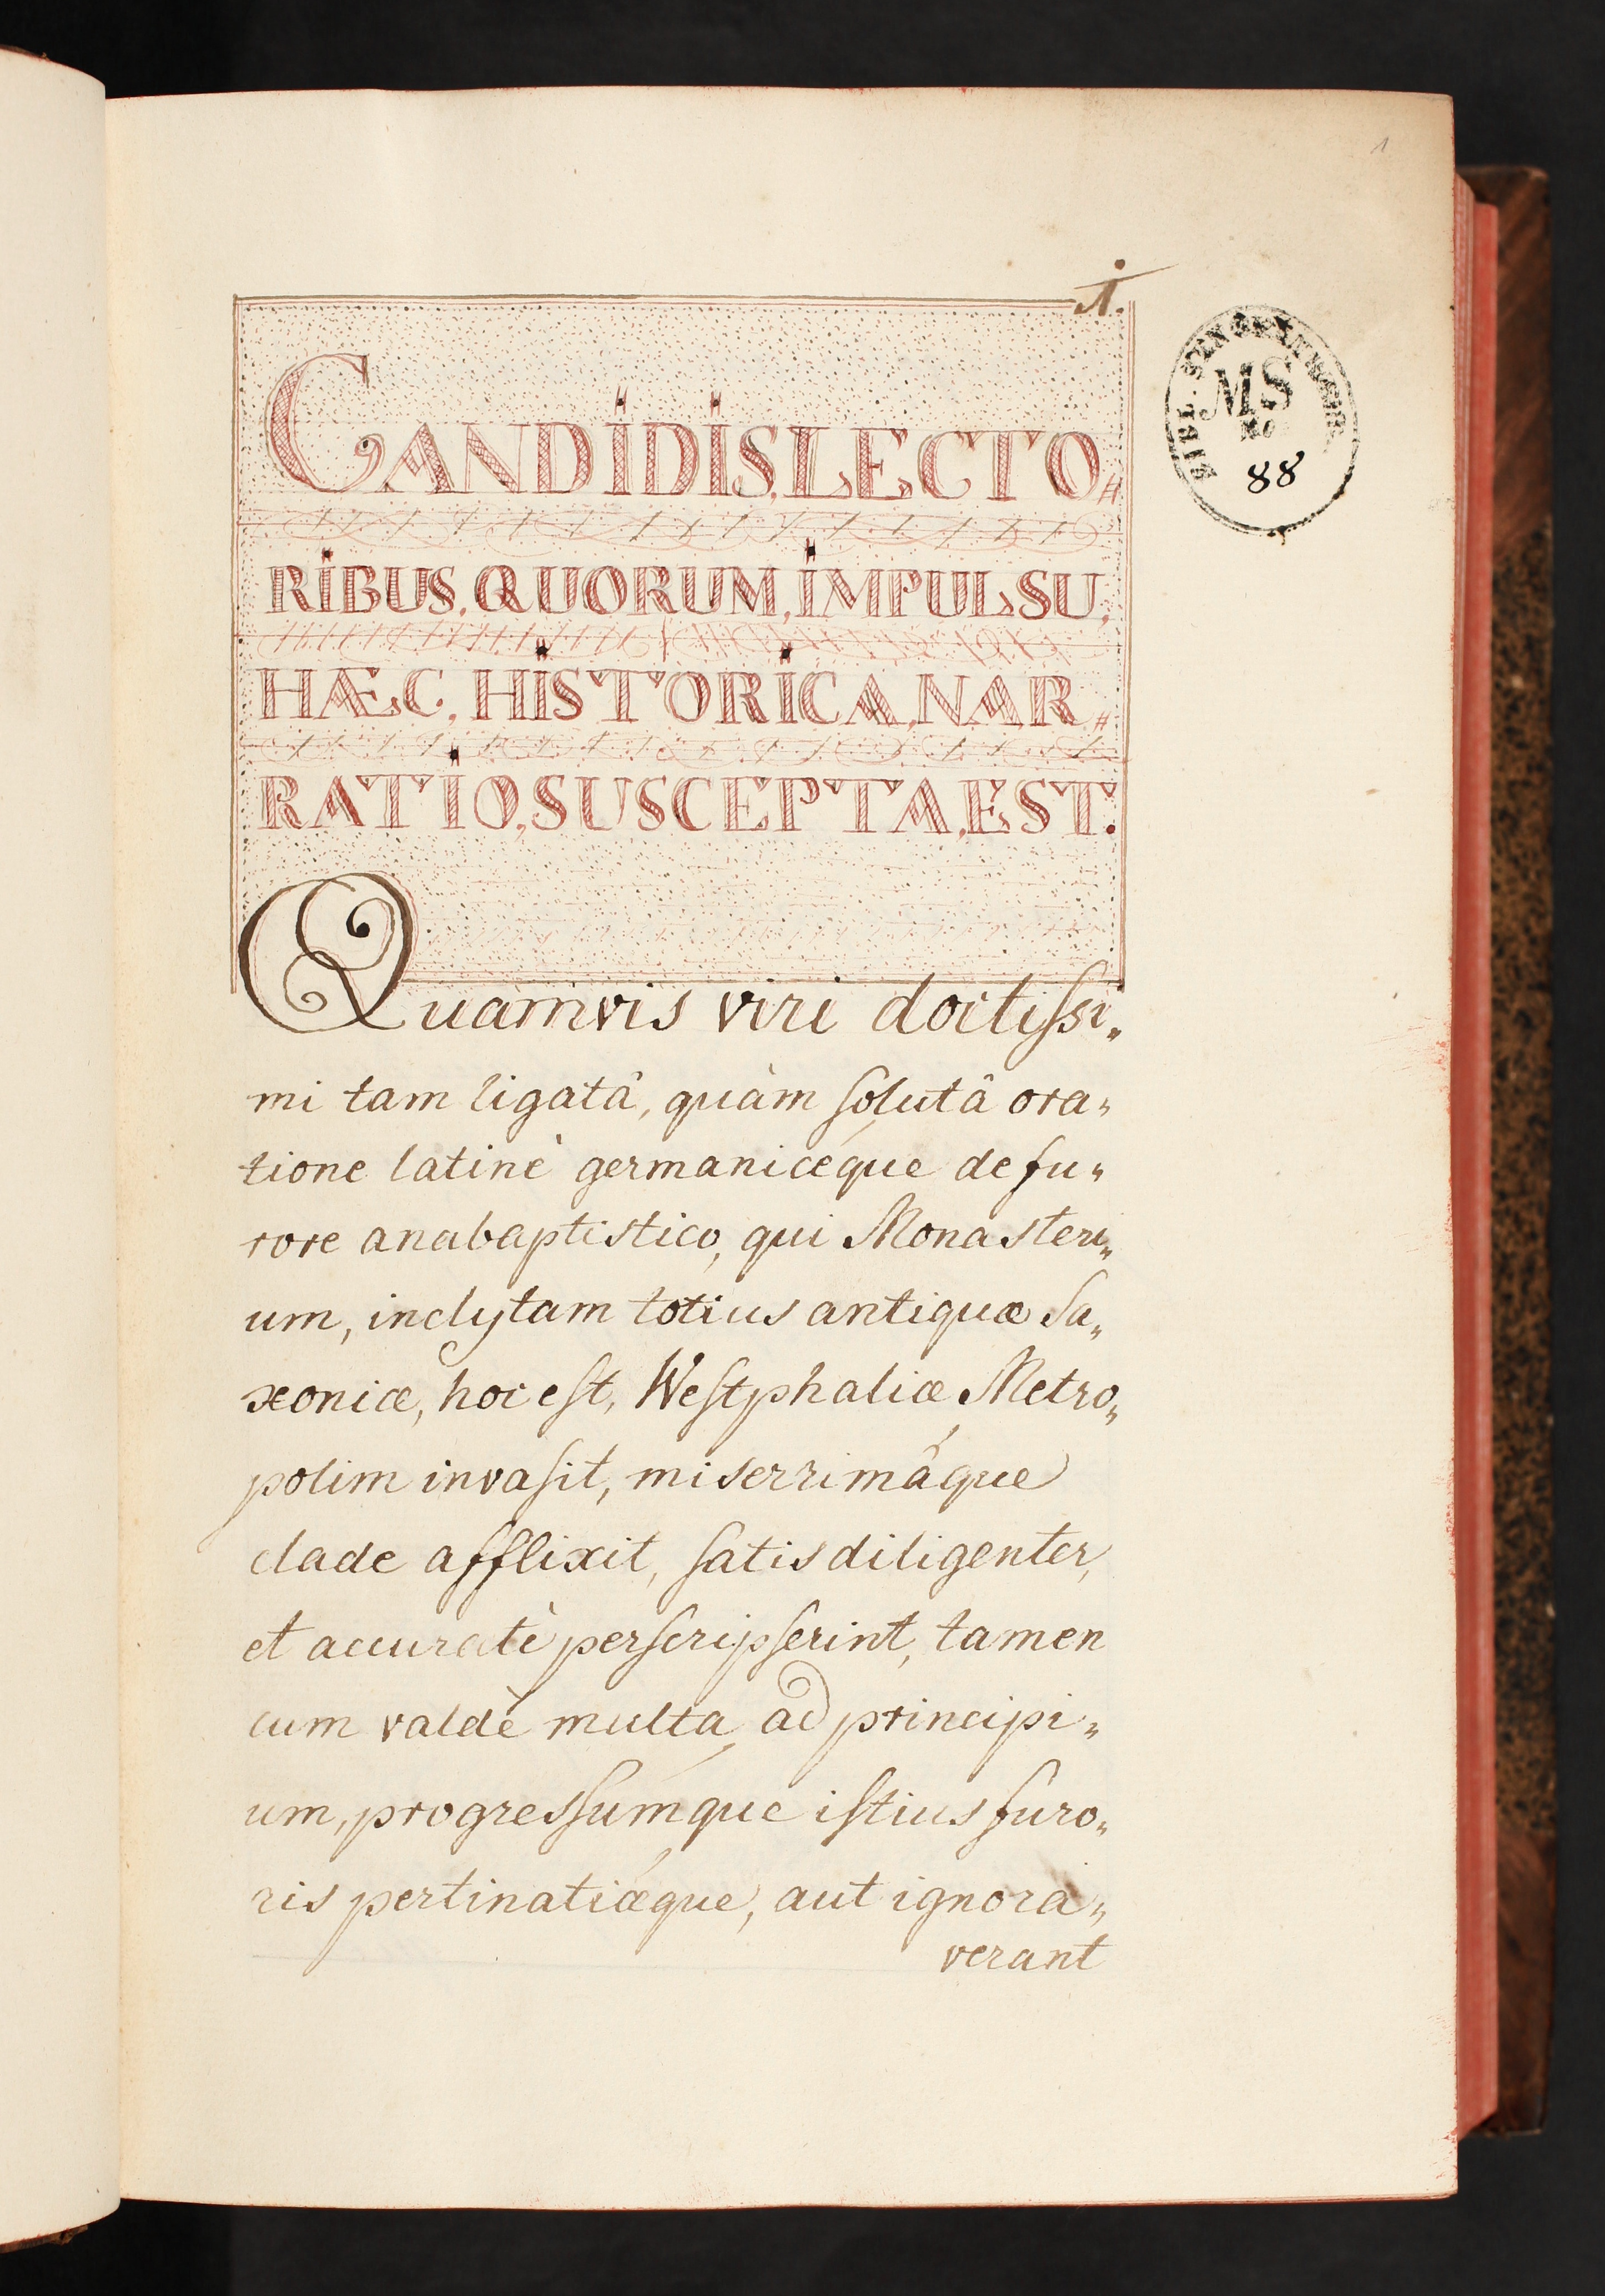 1
1.
CANDIDIS, LECTO⸗
RIBUS, QUORUM, IMPULSU,
HÆC, HISTORICA, NAR⸗
RATIO, SUSCEPTA, EST.
MS
No
88
Quamvis viri doctissi⸗
mi tam ligatâ, quàm solutâ ora⸗
tione latinè germanicéque de fu⸗
rore anabaptistico, qui Monasteri⸗
um, inclytam totius antiquæ Sa⸗
xoniæ, hoc est, Westphaliæ Metro⸗
polim invasit, miserrimâque
clade afflixit, satis diligenter,
et accuratè perscripserint, tamen
cum valdè multa, ad principi⸗
um, progressúmque istius furo⸗
ris pertinatiǽque, aut ignora⸗
verant